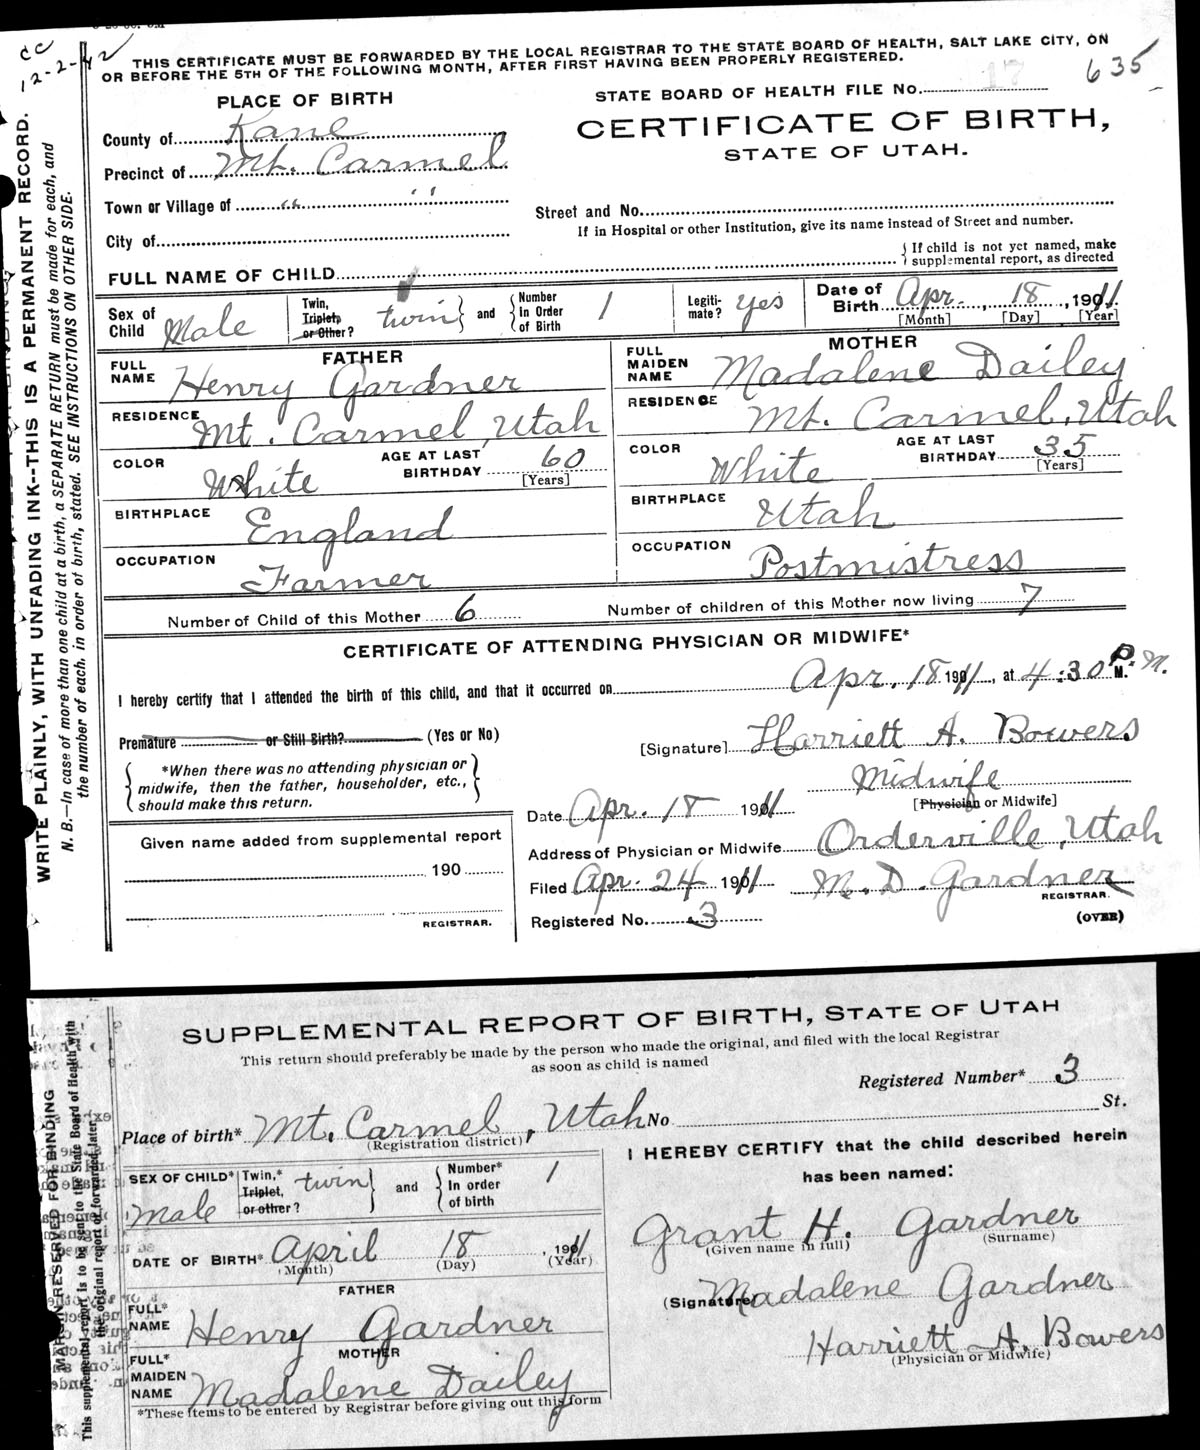 CC
12-2-42
THIS CERTIFICATE MUST BE FORWARDED BY THE LOCAL REGISTRAR TO THE STATE BOARD OF HEALTH, SALT LAKE CITY, ON
OR BEFORE THE 5TH OF THE FOLLOWING MONTH, AFTER FIRST HAVING BEEN PROPERLY REGISTERED.
635
PLACE OF BIRTH
STATE BOARD OF HEALTH FILE No. 17
County of Kane
CERTIFICATE OF BIRTH,
STATE OF UTAH.
Precinct of Mt. Carmel
Town or Village of " "
Street and No.
If in Hospital or other Institution, give its name instead of Street and number.
City of
FULL NAME OF CHILD
If child is not yet named, make
supplemental report, as directed
Sex of Child Male
Twin, Triplet, or Other? twin and Number in Order of Birth 1
Legitimate? Yes
Date of Birth Apr. 18, 1911
[Month] [Day] [Year]
FATHER
FULL NAME Henry Gardner
RESIDENCE Mt. Carmel, Utah
COLOR White AGE AT LAST BIRTHDAY 60 [Years]
BIRTHPLACE England
OCCUPATION Farmer
MOTHER
FULL MAIDEN NAME Madalene Dailey
RESIDENCE Mt. Carmel, Utah
COLOR White AGE AT LAST BIRTHDAY 35 [Years]
BIRTHPLACE Utah
OCCUPATION Postmistress
Number of Child of this Mother 6 Number of children of this Mother now living 7
CERTIFICATE OF ATTENDING PHYSICIAN OR MIDWIFE*
I hereby certify that I attended the birth of this child, and that it occurred on Apr. 18 1911, at 4:30 P. M.
Premature or Still Birth? (Yes or No)
*When there was no attending physician or
midwife, then the father, householder, etc.,
should make this return.
[Signature] Harriett A. Bowers
Midwife
[Physician or Midwife]
Date Apr. 18 1911
Address of Physician or Midwife Orderville, Utah
Filed Apr. 24 1911 M. D. Gardner
REGISTRAR.
Registered No. 3 (OVER)
Given name added from supplemental report
190
REGISTRAR.
WRITE PLAINLY, WITH UNFADING INK--THIS IS A PERMANENT RECORD.
N. B.—In case of more than one child at a birth, a SEPARATE RETURN must be made for each, and
the number of each, in order of birth, stated. SEE INSTRUCTIONS ON OTHER SIDE.
SUPPLEMENTAL REPORT OF BIRTH, STATE OF UTAH
This return should preferably be made by the person who made the original, and filed with the local Registrar
as soon as child is named
Registered Number* 3
Place of birth* Mt. Carmel, Utah No St.
(Registration district)
SEX OF CHILD* Male
Twin,* Triplet, or other? twin and Number* In order of birth 1
DATE OF BIRTH* April 18, 1911
(Month) (Day) (Year)
FATHER
FULL* NAME Henry Gardner
MOTHER
FULL* MAIDEN NAME Madalene Dailey
*These items to be entered by Registrar before giving out this form
I HEREBY CERTIFY that the child described herein
has been named:
Grant H. Gardner
(Given name in full) (Surname)
(Signature) Madalene Gardner
Harriett A. Bowers
(Physician or Midwife)
MARGIN RESERVED FOR BINDING
This supplemental report is to be sent to the State Board of Health with
the original report or forwarded later.